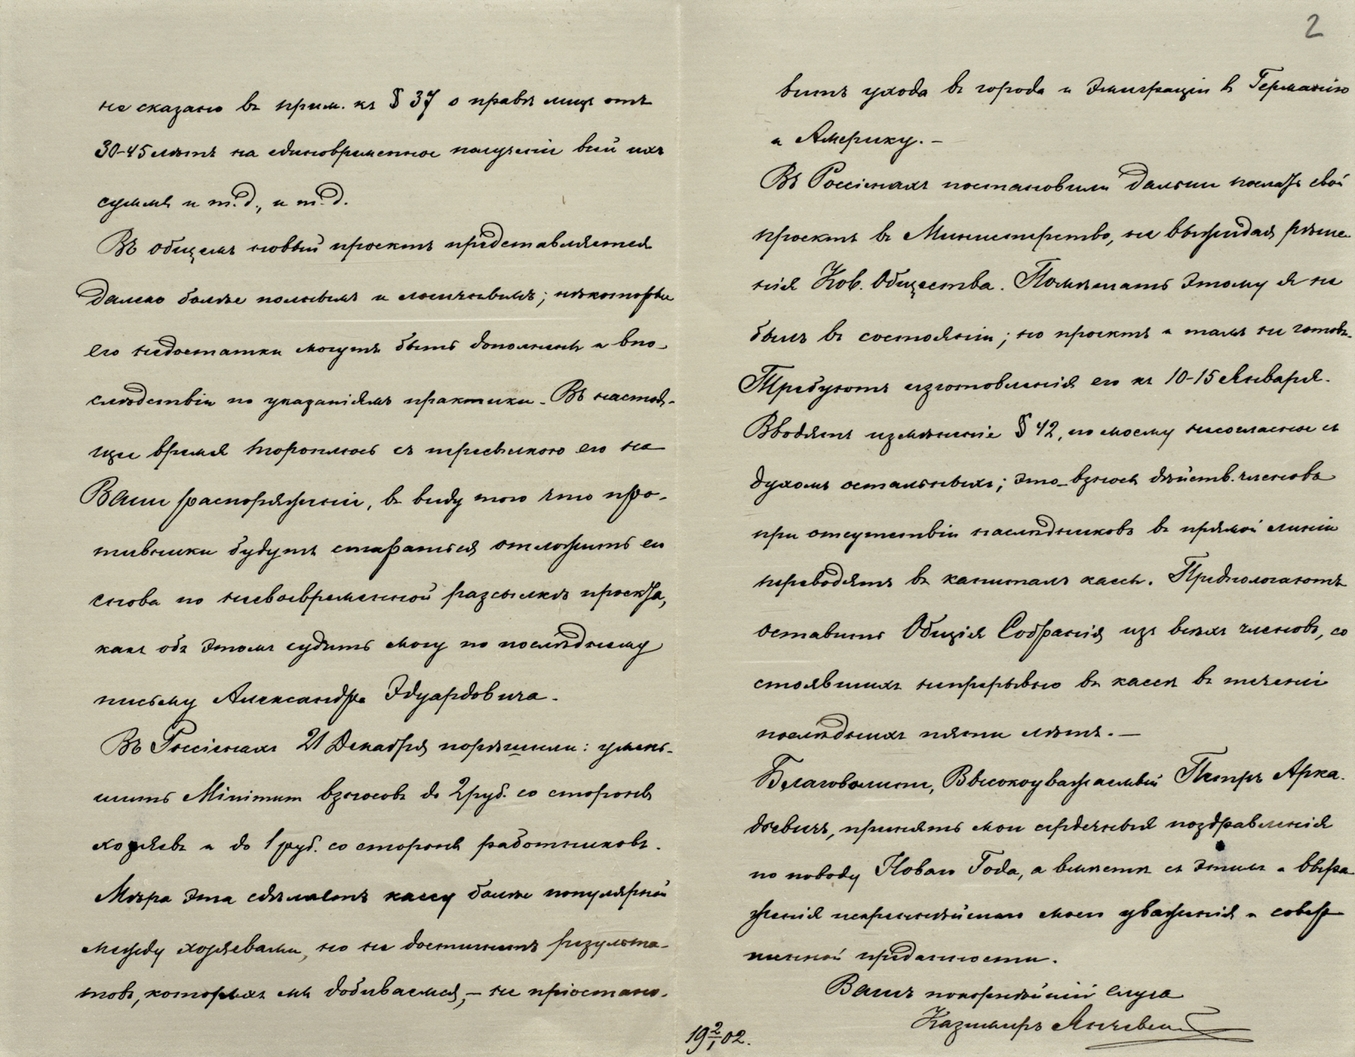 не сказано въ прим. къ § 37 о правѣ лицъ отъ
30-45 лѣтъ на единовременное полученіе всей ихъ
суммы и т.д., и т.д.
Въ общемъ новый проектъ представляется
далеко болѣе полнымъ и логичнымъ; нѣкоторые
его недостатки могутъ быть дополнены и впо-
слѣдствіи по указаніямъ практики. Въ настоя-
щее время тороплюсь съ пересылкою его на
Ваше распоряженіе, въ виду того что про-
тивники будутъ стараться отложить его
снова по несвоевременной разсылкѣ проекта,
какъ объ этомъ судить могу по послѣднему
письму Александра Эдуардовича.
Въ Россіенахъ 21 Декабря порѣшили: умень-
шить Minimum взносовъ до 2 руб. со стороны
хозяевъ и до 1 руб. со стороны работниковъ.
Мѣра эта сдѣлаетъ кассу болѣе популярной
между хозяевами, но не достигнетъ результа-
товъ, которыхъ мы добиваемся, – не пріостано-
2
витъ ухода въ города и эмиграціи въ Германію
и Америку. –
Въ Россіенахъ постановили далѣе послать свой
проектъ въ Министерство, не выжидая рѣше-
нія Ков. Общества. Помѣшать этому я не
былъ въ состояніи; но проектъ и тамъ не готовъ.
Требуютъ изготовленія его къ 10-15 Января.
Вводятъ измѣненіе § 42, по моему несогласное съ
духомъ остальныхъ; это – взносы дѣйств. членовъ
при отсутствіи наслѣдниковъ въ прямой линіи
переводятъ въ капиталъ кассы. Предпологаютъ
оставить Общія Собранія изъ всѣхъ членовъ, со
стоявшихъ непрерывно въ кассѣ въ теченіи
послѣднихъ пяти лѣтъ. –
Благоволите, Высокоуважаемый Петръ Арка-
дьевичъ, принять мои сердечныя поздравленія
по поводу Новаго Года, а вмѣстѣ съ этимъ и выра-
женія искреннѣйшаго моего уваженія и совер-
шенной преданности.
Вашъ покорнѣйшій слуга
Казимиръ
19 2/1 02.